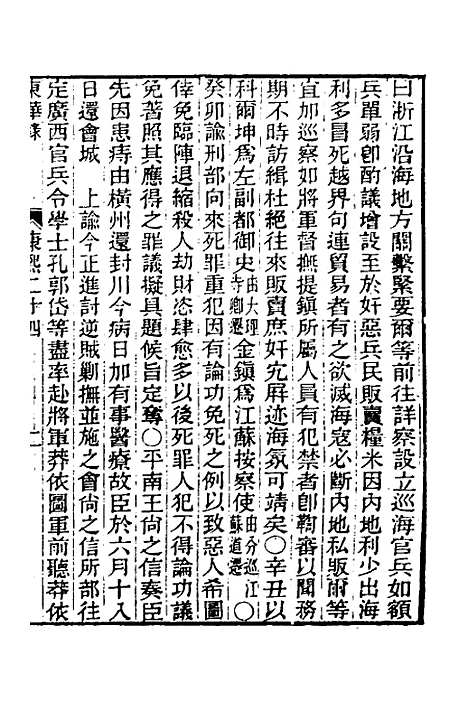 曰浙江沿海地方關繫緊要爾等前往詳察設立巡海官兵如額
兵單弱卽酌議增設至於奸惡兵民販賣糧米因內地利少出海
利多冒死越界句連貿易者有之欲滅海寇必斷內地私販爾等
宜加巡察如將軍督撫提鎮所屬人員有犯禁者卽鞫審以聞務
期不時訪緝杜絕往來販賣庶奸宄屏迹海氛可靖矣〇辛丑以
科爾坤爲左副都御史由大理寺卿遷金鎮爲江蘇按察使由分巡江蘇道遷〇
癸卯諭刑部向來死罪重犯因有論功免死之例以致惡人希圖
倖免臨陣退縮殺人劫財恣肆愈多以後死罪人犯不得論功議
免著照其應得之罪議擬具題候旨定奪〇平南王尚之信奏臣
先因患痔由橫州還封川今病日加有事醫療故臣於六月十八
日還會城　上諭今正進討逆賊剿撫並施之會尚之信所部往
定廣西官兵令學士孔郭岱等盡率赴將軍莽依圖軍前聽莽依
東華錄　康熙二十四